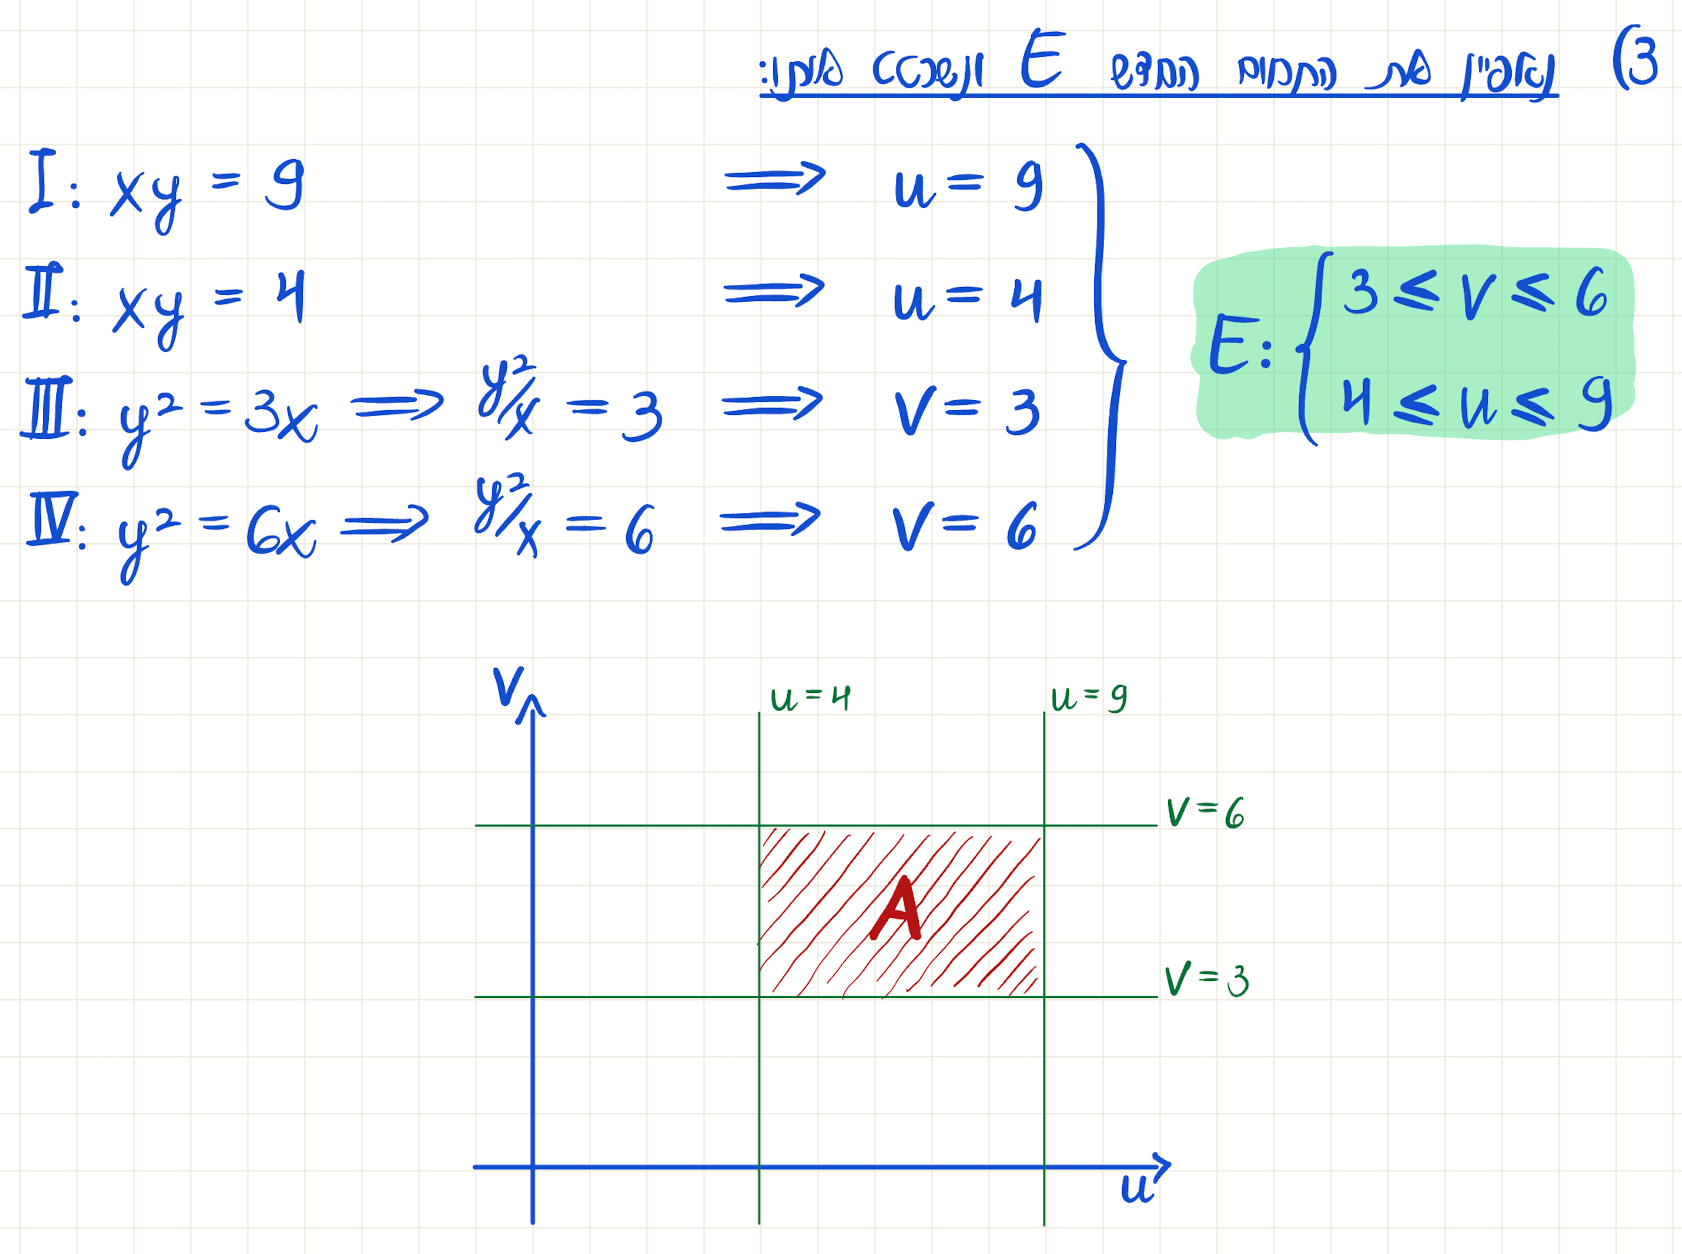 3) נאפיין את התחום החדש E ונשרטט אותו:
I: xy = 9 ⟹ u = 9
II: xy = 4 ⟹ u = 4
III: y² = 3x ⟹ y²/x = 3 ⟹ v = 3
IV: y² = 6x ⟹ y²/x = 6 ⟹ v = 6
E: { 3 ≤ v ≤ 6
4 ≤ u ≤ 9
v
u = 4
u = 9
v = 6
A
v = 3
u